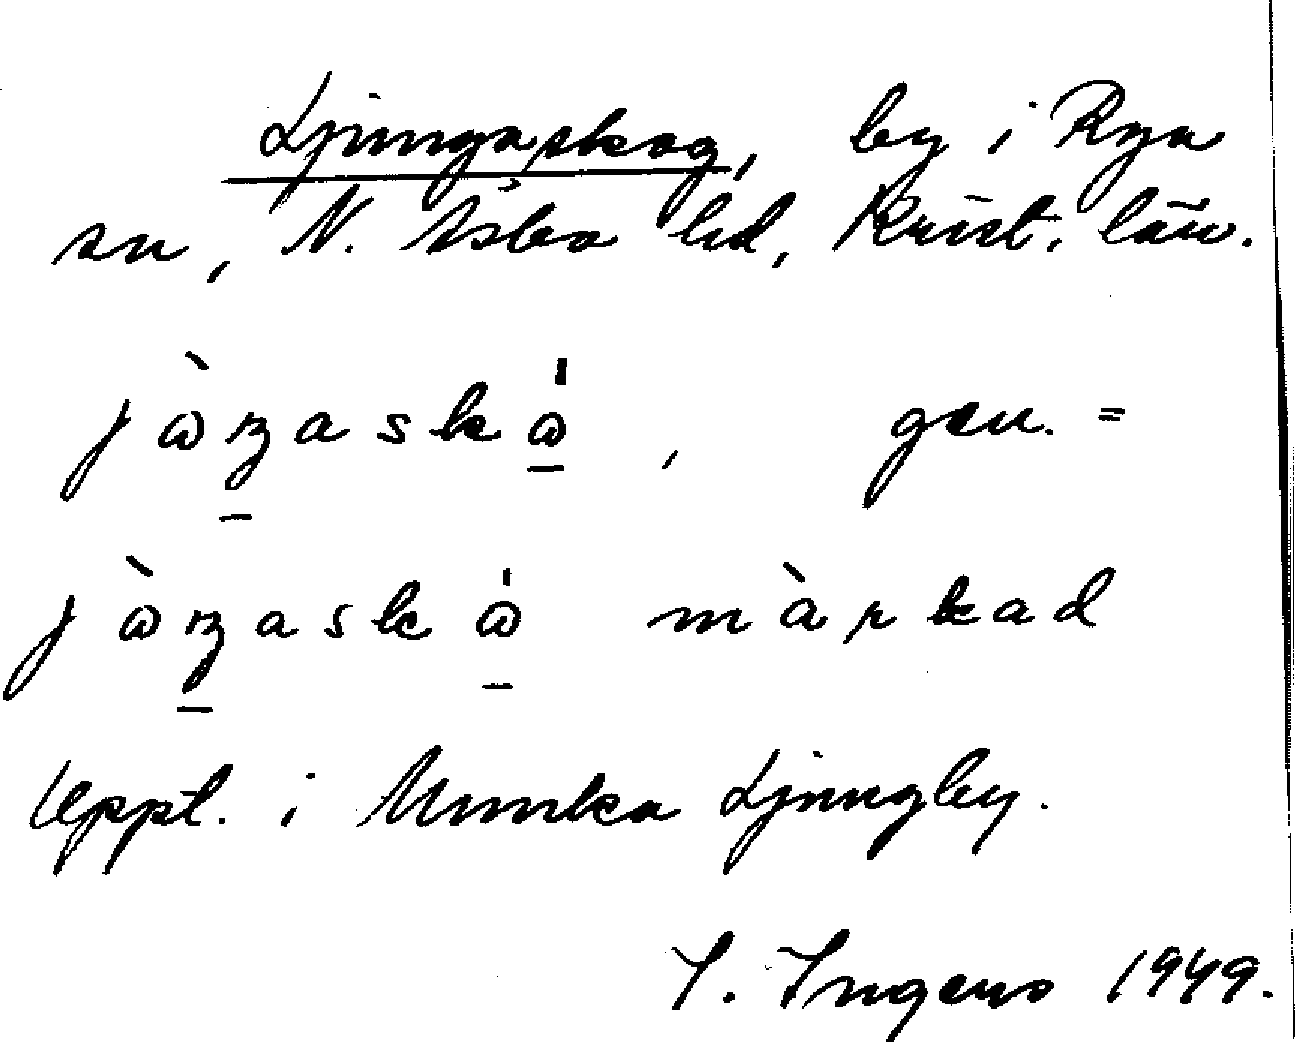 Ljungaskog, by i Rya
sn, N. Åsbo hd, Krist. län.
jὼꜧaskω̍, gen. =
jὼꜧaskω̍ màrkad
Uppt. i Munka Ljungby.
I. Ingers 1949.